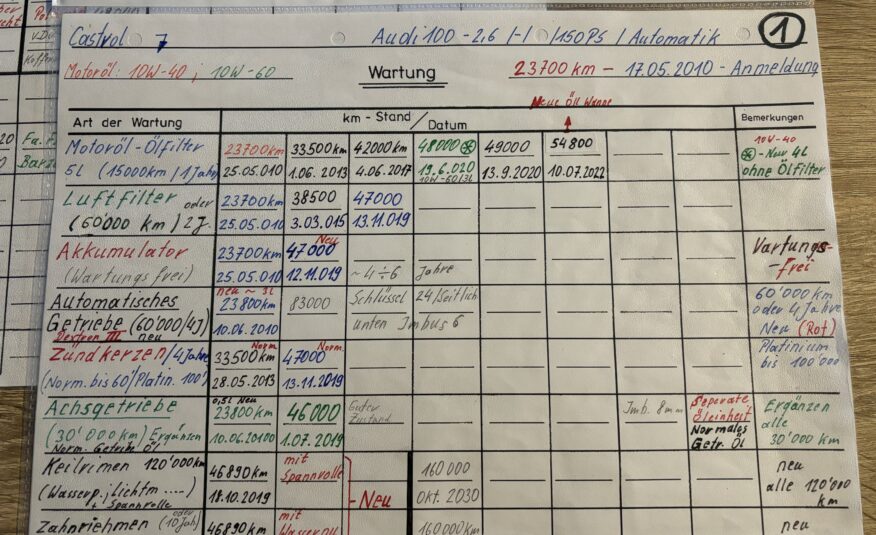 Castrol 7 Audi 100 - 2,6 /-/ /150 PS / Automatik 1
Motoröl: 10W-40 ; 10W-60 Wartung 23700 km - 17.05.2010 - Anmeldung
Neue Öll Wanne
Art der Wartung km - Stand / Datum Bemerkungen
Motoröl-Ölfilter 23700 km 33.500 km 42000 km 48000 49000 54 800 10W-40
5L (15000 km / 1 Jahr) 25.05.010 1.06.2013 4.06.2017 19.6.020 13.9.2020 10.07.2022 - Neu 4L
10W-60/3L ohne Ölfilter
Luftfilter oder 23700 km 38500 47000
(60'000 km) 2 J. 25.05.010 3.03.015 13.11.019
Akkumulator 23700 km 47000 Neu Vartungs-
(Wartungs frei) 25.05.010 12.11.019 ~ 4÷6 Jahre -frei
Automatisches neu ~ 3L 23800 km 83000 Schlüssel 24/Seitlich 60'000 km
Getriebe (60'000/4J) 10.06.2010 unten Imbus 6 oder 4 Jahre
Dextron III neu Neu (Rot)
Zündkerzen / 4 Jahre 33500 km Norm. 47000 Norm. Platinium
(Norm. bis 60'/Platin. 100') 28.05.2013 13.11.2019 bis 100'000
Achsgetriebe 0,5L Neu 23800 km 46000 Guter Zustand Imb. 8 mm Seperate Öleinheit Ergänzen
(30'000 km) Ergänzen 10.06.20100 1.07.2019 Normales alle
Norm. Getrieb. Öl Getr. Öl 30'000 km
Keilrimen 120'000 km 46890 km mit Spannrolle 160 000 neu
(Wasserp.; Lichtm ....) 18.10.2019 - Neu Okt. 2030 alle 120'000
+ Spannrolle km
Zahnriehmen (oder 10 Jah) 46890 km mit 160000 km neu